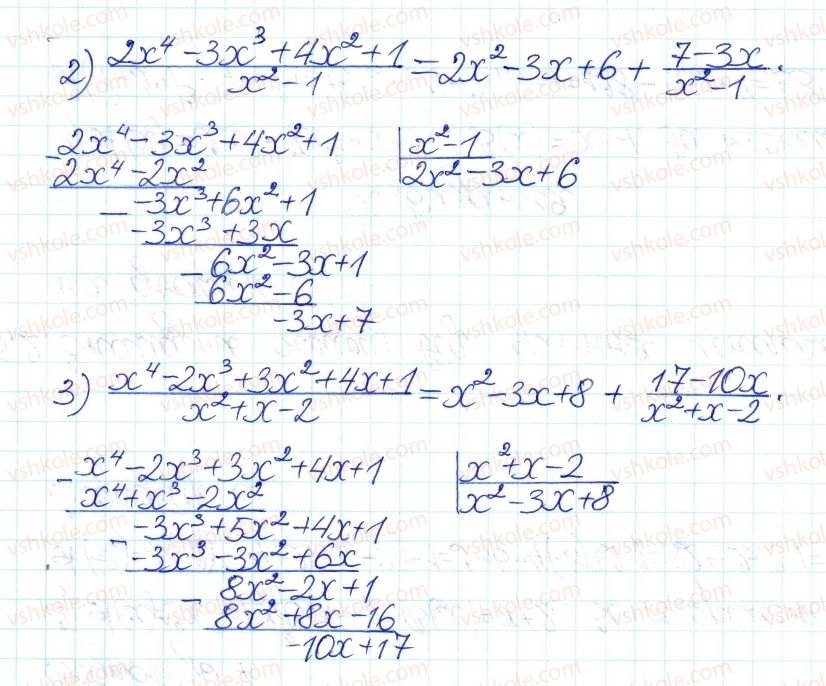 2) (2x⁴ - 3x³ + 4x² + 1)/(x² - 1) = 2x² - 3x + 6 + (7 - 3x)/(x² - 1).
- 2x⁴ - 3x³ + 4x² + 1 | x² - 1
2x⁴ - 2x² | 2x² - 3x + 6
- -3x³ + 6x² + 1
-3x³ + 3x
- 6x² - 3x + 1
6x² - 6
-3x + 7
3) (x⁴ - 2x³ + 3x² + 4x + 1)/(x² + x - 2) = x² - 3x + 8 + (17 - 10x)/(x² + x - 2).
- x⁴ - 2x³ + 3x² + 4x + 1 | x² + x - 2
x⁴ + x³ - 2x² | x² - 3x + 8
- -3x³ + 5x² + 4x + 1
-3x³ - 3x² + 6x
- 8x² - 2x + 1
8x² + 8x - 16
-10x + 17
vshkole.com